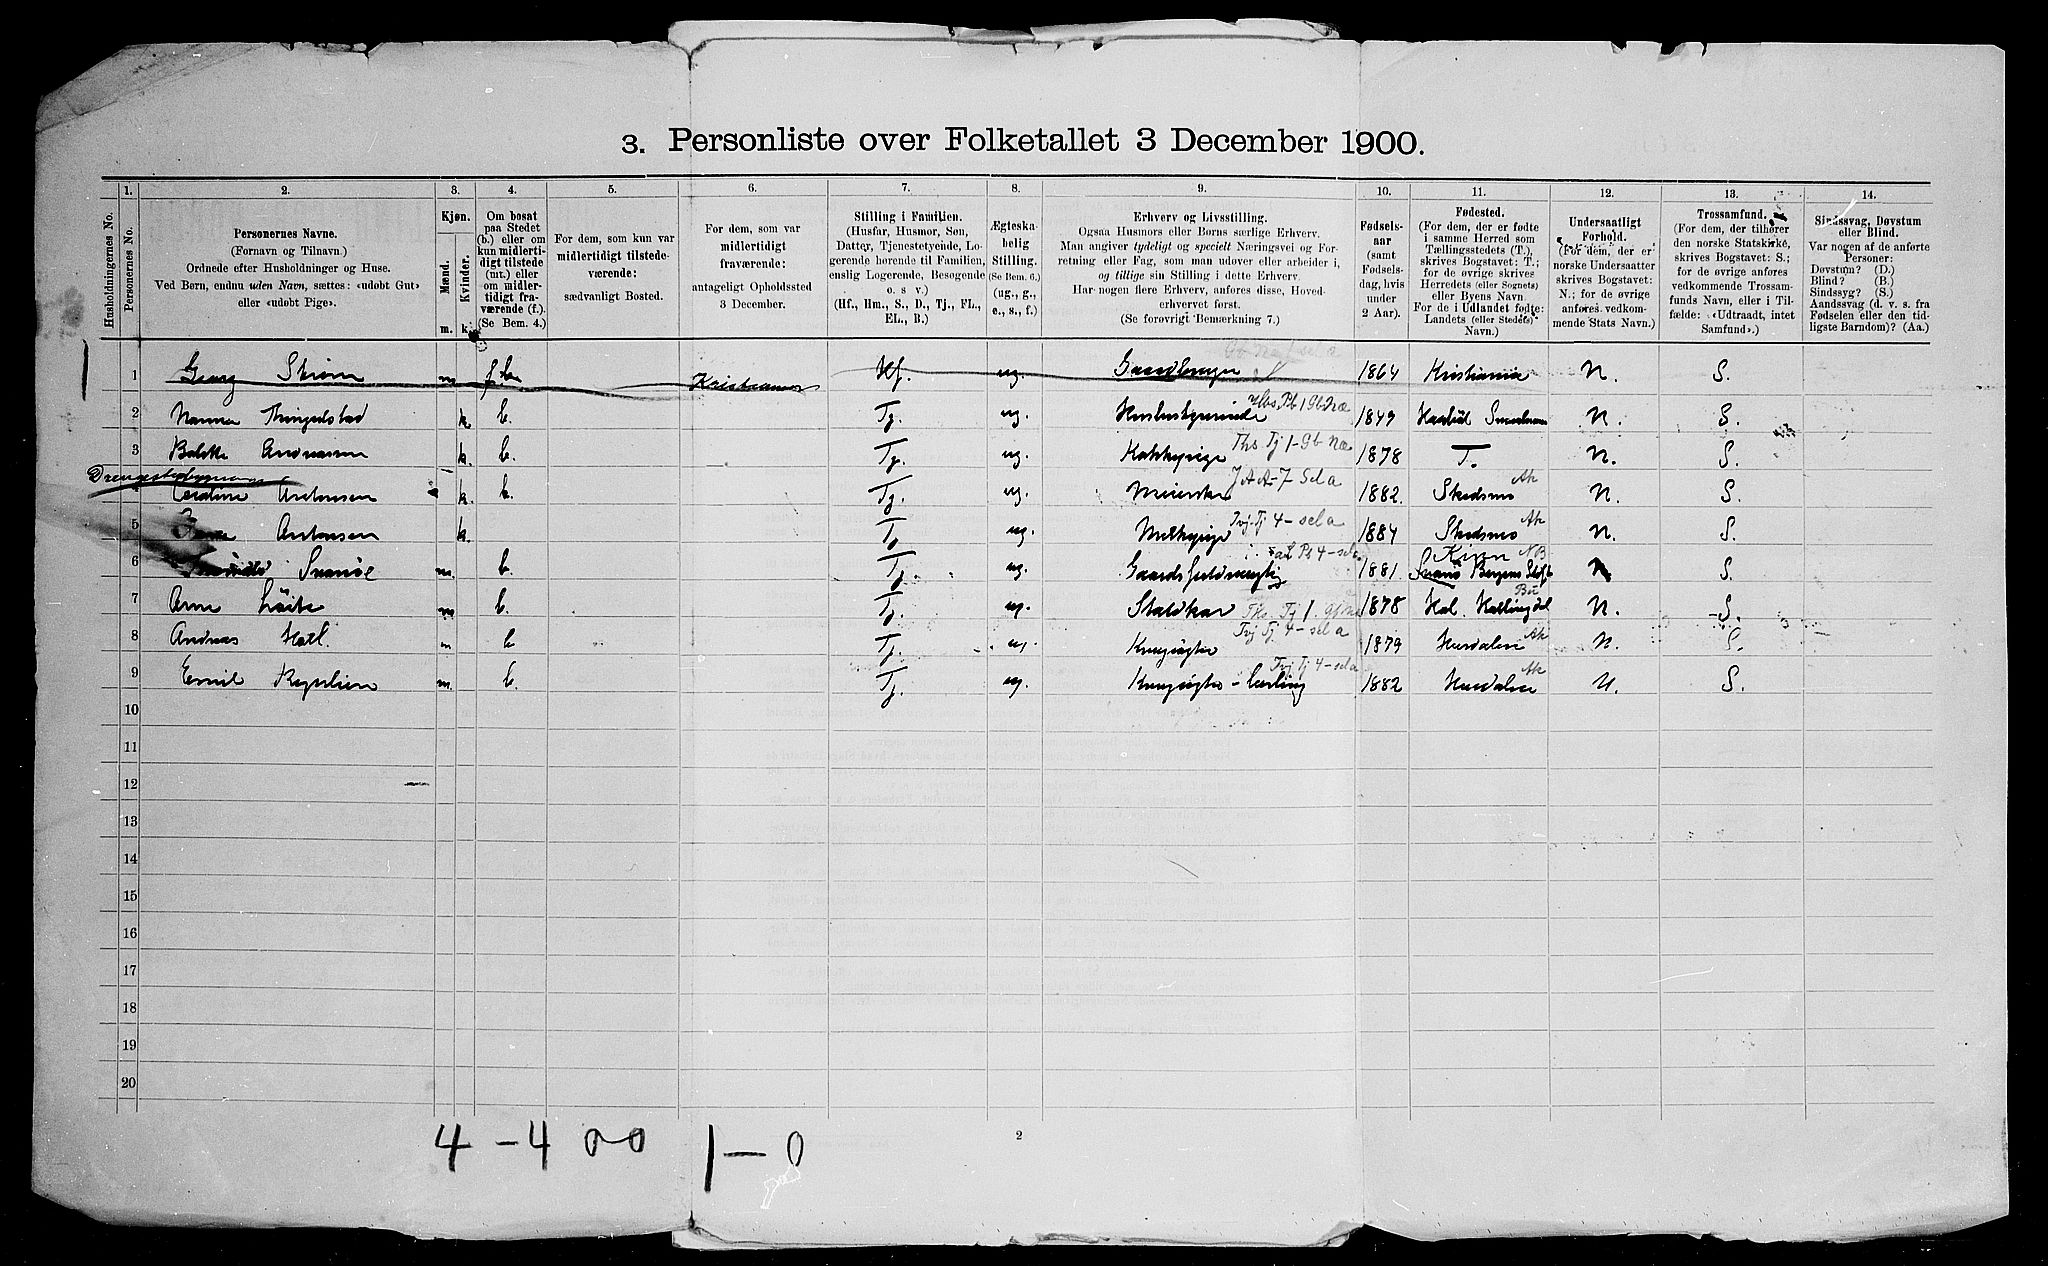 3. Personliste over Folketallet 3 December 1900.
1. 2. 3. 4. 5. 6. 7. 8. 9. 10. 11. 12. 13. 14.
Husholdningernes No.
Personernes No.
Personernes Navne.
(Fornavn og Tilnavn.)
Ordnede efter Husholdninger og Huse.
Ved Børn, endnu uden Navn, sættes: «udøbt Gut»
eller «udøbt Pige».
Kjøn.
Mænd.
Kvinder.
m. k.
Om bosat
paa Stedet
(b.) eller om
kun midlerti-
digt tilstede
(mt.) eller
om midler-
tidigt fra-
værende (f.).
(Se Bem. 4.)
For dem, som kun var
midlertidigt tilstede-
værende:
sædvanligt Bosted.
For dem, som var
midlertidigt
fraværende:
antageligt Opholdssted
3 December.
Stilling i Familien.
(Husfar, Husmor, Søn,
Datter, Tjenestetyende, Lo-
gerende hørende til Familien,
enslig Logerende, Besøgende
o. s v.)
(Hf., Hm., S., D., Tj., FL.,
EL., B.)
Ægteska-
belig
Stilling.
(Se Bem. 6.)
(ug., g.,
e., s., f.)
Erhverv og Livsstilling.
Ogsaa Husmors eller Børns særlige Erhverv.
Man angiver tydeligt og specielt Næringsvei og For-
retning eller Fag, som man udøver eller arbeider i,
og tillige sin Stilling i dette Erhverv.
Har nogen flere Erhverv, anføres disse, Hoved-
erhvervet først.
(Se forøvrigt Bemærkning 7.)
Fødsels-
aar
(samt
Fødsels-
dag, hvis
under
2 Aar).
Fødested.
(For dem, der er fødte
i samme Herred som
Tællingsstedets (T.),
skrives Bogstavet: T.;
for de øvrige skrives
Herredets (eller Sognets)
eller Byens Navn.
For de i Udlandet fødte:
Landets (eller Stedets)
Navn.)
Undersaatligt
Forhold.
(For dem, der er
norske Undersaatter
skrives Bogstavet:
N.; for de øvrige
anføres vedkom-
mende Stats Navn.)
Trossamfund.
(For dem, der tilhører
den norske Statskirke,
skrives Bogstavet: S.;
for de øvrige anføres
vedkommende Trossam-
funds Navn, eller i Til-
fælde: «Udtraadt, intet
Samfund».)
Sindssvag, Døvstum
eller Blind.
Var nogen af de anførte
Personer:
Døvstum? (D.)
Blind? (B.)
Sindssyg? (S.)
Aandssvag (d. v. s. fra
Fødselen eller den tid-
ligste Barndom)? (Aa.)
1 Georg Strøm m f b Kristiania Hf. ug. Gaardbruger 1864 Kristiania N. S.
2 k. b. Tj. ug. 1849 N. S.
3 k. b. Tj. ug. Kokkepige Ths Tj 1-Gb Næ 1878 T. N. S.
4 Antonsen k b. Tj. ug. Meierske 1882. Skedsmo Ak N. S.
5 Antonsen k. Tj ug. Melkepige Tvj. Tj 4-sela 1884 Skedsmo Ak N. S.
6 Svanøe m. b. Tj ug. 1881. Svanø Bergens Stift N S.
7 Arne m b. Tj. ug. Staldkar 1878 Hol. Hallingdal Bu N. S.
8 Andreas m b Tj. ug. Tvj Tj 4-sela 1879 Hurdalen Ak N. S.
9 Emil m. b. Tj. ug. Lærling Tvj Tj 4-sela 1882 Hurdalen Ak N. S.
10
11
12
13
14
15
16
17
18
19
20
4 - 4 00 1 - 0
2